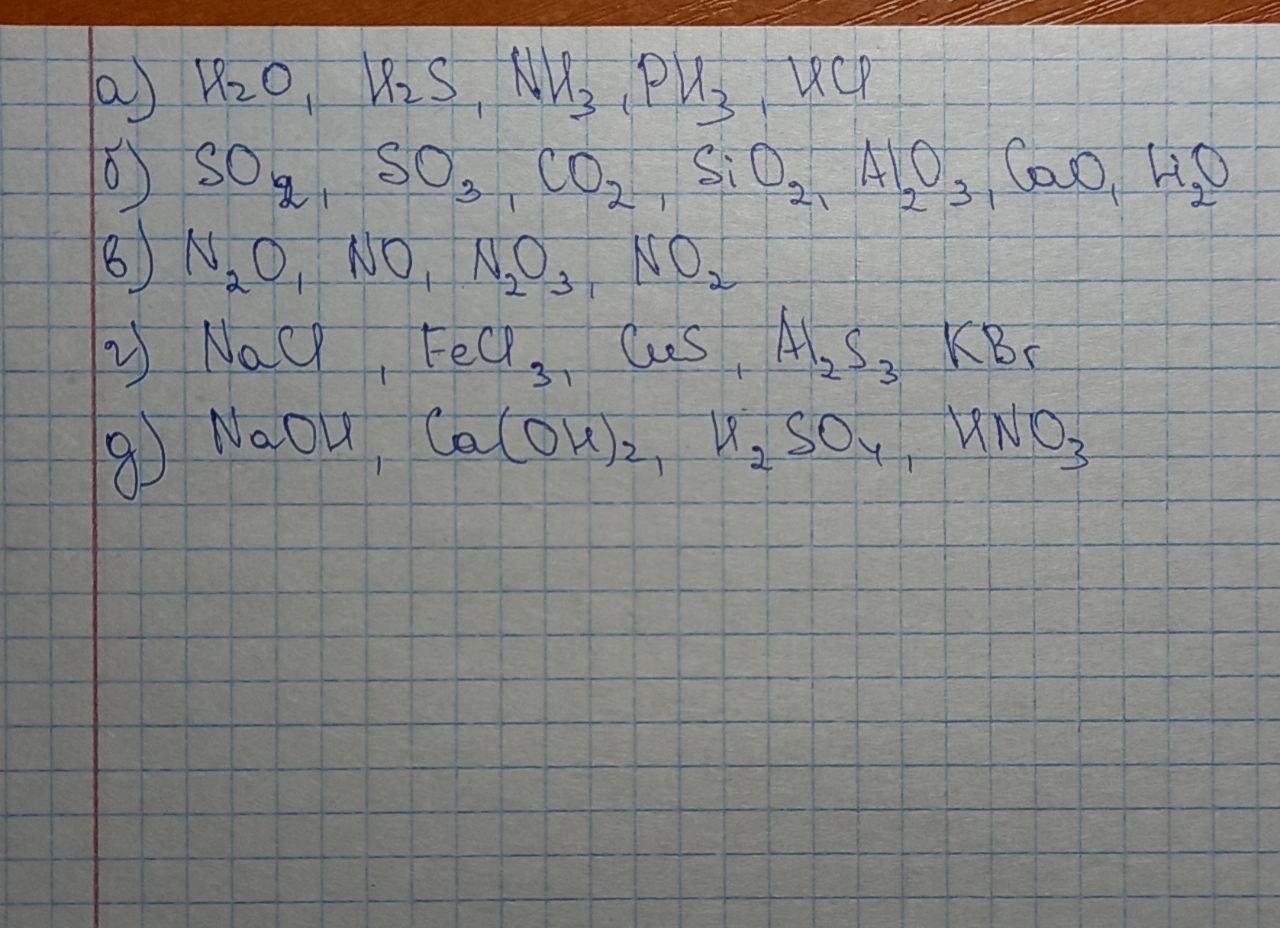 а) H₂O, H₂S, NH₃, PH₃, HCl
б) SO₂, SO₃, CO₂, SiO₂, Al₂O₃, CaO, Li₂O
в) N₂O, NO, N₂O₃, NO₂
г) NaCl, FeCl₃, CuS, Al₂S₃ KBr
д) NaOH, Ca(OH)₂, H₂SO₄, HNO₃